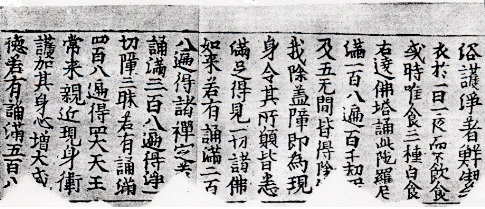 俗護淨著鮮潔
衣於一日一夜而不飲食
或時唯食三種白食
右遶佛塔誦此陀羅尼
滿一百八遍百千劫
及五无間皆得除
我除盖障即為現
身令其所願皆悉
滿足得見一切諸佛
如来若有誦滿二百
八遍得諸禪定若
誦滿三百八遍得淨
切障三昧若有誦滿
四百八遍得四大天王
常来親近現身衛
護加其身心增大威
德若有誦滿五百八